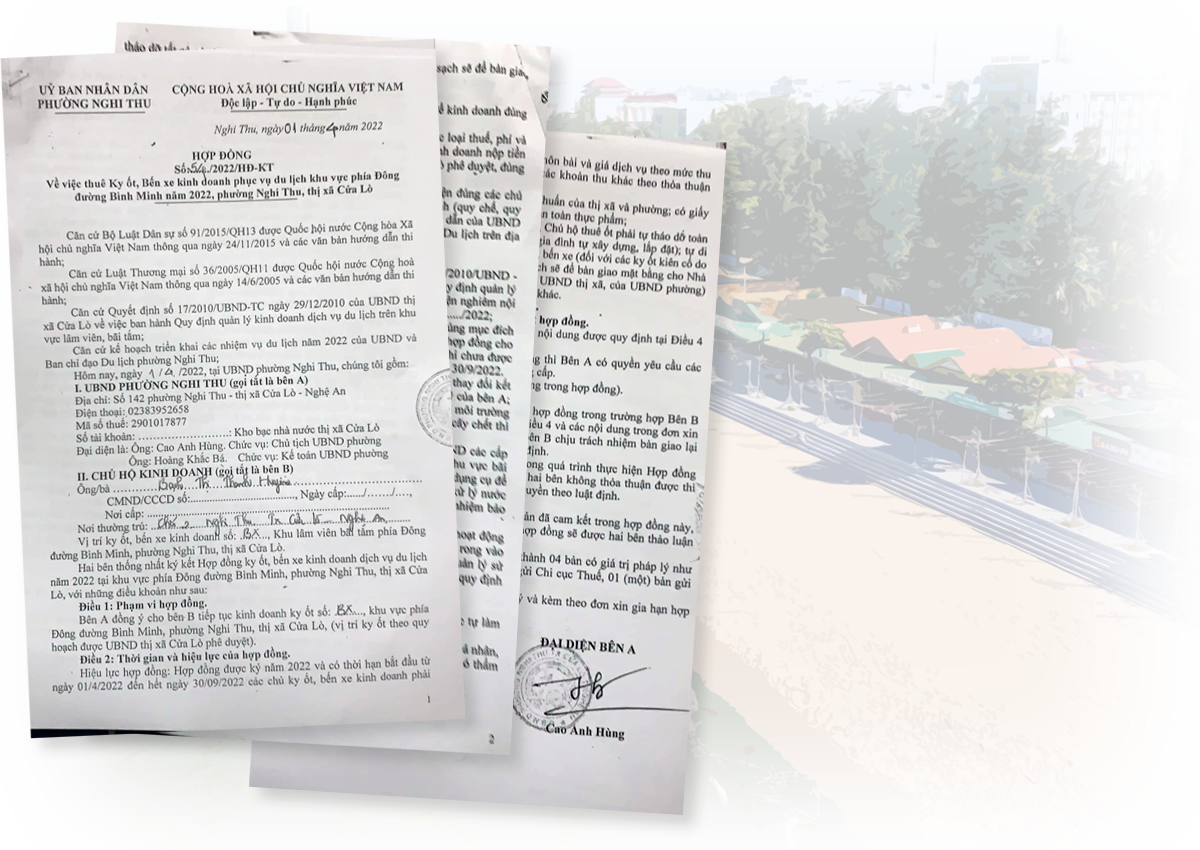 UỶ BAN NHÂN DÂN
PHƯỜNG NGHI THU
CỘNG HOÀ XÃ HỘI CHỦ NGHĨA VIỆT NAM
Độc lập - Tự do - Hạnh phúc
Nghi Thu, ngày 01 tháng 4 năm 2022
HỢP ĐỒNG
Số: 54./2022/HĐ-KT
Về việc thuê Ky ốt, Bến xe kinh doanh phục vụ du lịch khu vực phía Đông
đường Bình Minh năm 2022, phường Nghi Thu, thị xã Cửa Lò
Căn cứ Bộ Luật Dân sự số 91/2015/QH13 được Quốc hội nước Cộng hòa Xã
hội chủ nghĩa Việt Nam thông qua ngày 24/11/2015 và các văn bản hướng dẫn thi
hành;
Căn cứ Luật Thương mại số 36/2005/QH11 được Quốc hội nước Cộng hoà
xã hội chủ nghĩa Việt Nam thông qua ngày 14/6/2005 và các văn bản hướng dẫn thi
hành;
Căn cứ Quyết định số 17/2010/UBND-TC ngày 29/12/2010 của UBND thị
xã Cửa Lò về việc ban hành Quy định quản lý kinh doanh dịch vụ du lịch trên khu
vực lâm viên, bãi tắm;
Căn cứ kế hoạch triển khai các nhiệm vụ du lịch năm 2022 của UBND và
Ban chỉ đạo Du lịch phường Nghi Thu;
Hôm nay, ngày 1/4/2022, tại UBND phường Nghi Thu, chúng tôi gồm:
I. UBND PHƯỜNG NGHI THU (gọi tắt là bên A)
Địa chỉ: Số 142 phường Nghi Thu - thị xã Cửa Lò - Nghệ An
Điện thoại: 02383952658
Mã số thuế: 2901017877
Số tài khoản: ..............................: Kho bạc nhà nước thị xã Cửa Lò
Đại diện là: Ông: Cao Anh Hùng. Chức vụ: Chủ tịch UBND phường
Ông: Hoàng Khắc Bá. Chức vụ: Kế toán UBND phường
II. CHỦ HỘ KINH DOANH (gọi tắt là bên B)
Ông/bà
CMND/CCCD số:..............................., Ngày cấp:....../....../....,
Nơi cấp:
Nơi thường trú: Nghi Thu Tx Cửa Lò Nghệ An
Vị trí ky ốt, bến xe kinh doanh số: BX..., Khu lâm viên bãi tắm phía Đông
đường Bình Minh, phường Nghi Thu, thị xã Cửa Lò.
Hai bên thống nhất ký kết Hợp đồng ky ốt, bến xe kinh doanh dịch vụ du lịch
năm 2022 tại khu vực phía Đông đường Bình Minh, phường Nghi Thu, thị xã Cửa
Lò, với những điều khoản như sau:
Điều 1: Phạm vi hợp đồng.
Bên A đồng ý cho bên B tiếp tục kinh doanh ky ốt số: BX..., khu vực phía
Đông đường Bình Minh, phường Nghi Thu, thị xã Cửa Lò, (vị trí ky ốt theo quy
hoạch được UBND thị xã Cửa Lò phê duyệt).
Điều 2: Thời gian và hiệu lực của hợp đồng.
Hiệu lực hợp đồng: Hợp đồng được ký năm 2022 và có thời hạn bắt đầu từ
ngày 01/4/2022 đến hết ngày 30/09/2022 các chủ ky ốt, bến xe kinh doanh phải
1
sạch sẽ để bàn gia
kinh doanh đúng
loại thuế, phí và
doanh nộp tiền
phê duyệt, đúng
đúng các chủ
(quy chế, quy
dẫn của UBND
Du lịch trên địa
/2010/UBND -
định quản lý
nghiêm nội
/2022;
mục đích
hợp đồng cho
chưa được
30/9/2022.
thay đổi kết
của bên A;
môi trường
cây chết thì
các cấp
vực bãi
dụng cụ để
xử lý nước
nhiệm bảo
hoạt động
trong vào
quản lý sử
quy định
tự làm
nhân,
có thẩm
2
môn bài và giá dịch vụ theo mức thu
các khoản thu khác theo thỏa thuận
chuẩn của thị xã và phường; có giấy
toàn thực phẩm;
Chủ hộ thuê ốt phải tự tháo dỡ toàn
gia đình tự xây dựng, lắp đặt); tự di
bến xe (đối với các ky ốt kiên cố do
sẽ để bàn giao mặt bằng cho Nhà
UBND thị xã, của UBND phường)
khác.
hợp đồng.
nội dung được quy định tại Điều 4
thì Bên A có quyền yêu cầu các
cấp.
trong hợp đồng).
hợp đồng trong trường hợp Bên B
4 và các nội dung trong đơn xin
B chịu trách nhiệm bàn giao lại
định.
quá trình thực hiện Hợp đồng
hai bên không thỏa thuận được thì
quyền theo luật định.
đã cam kết trong hợp đồng này,
đồng sẽ được hai bên thảo luận
thành 04 bản có giá trị pháp lý như
gửi Chi cục Thuế, 01 (một) bản gửi
và kèm theo đơn xin gia hạn hợp
ĐẠI DIỆN BÊN A
Cao Anh Hùng